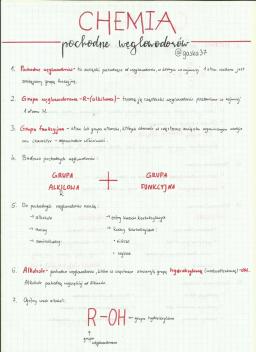 CHEMIA
pochodne węglowodorów
@gaska37
1. Pochodne węglowodorów - to związki pochodzące od węglowodorów, w których co najmniej 1 atom wodoru jest
zastąpiony grupą funkcyjną.
2. Grupa węglowodorowa -R-(alkilowa)- tworzą ją cząsteczki węglowodorów pozbawione co najmniej
1 atomu H.
3. Grupa funkcyjna - atom lub grupa atomów, których obecność w cząsteczce związku organicznego nadaje
mu charakter - odpowiednie właściwości.
4. Budowa pochodnych węglowodorów:
GRUPA ALKILOWA + GRUPA FUNKCYJNA
5. Do pochodnych węglowodorów należą:
→ alkohole
→ aminy
→ aminokwasy
→ estry kwasów karboksylowych
→ kwasy karboksylowe:
6. Alkohole - pochodne węglowodorów, które w cząsteczce zawierają grupę hydroksylową -OH.
Alkohole pochodzą najczęściej od alkanów.
7. Ogólny wzór alkoholi:
R-OH ← grupa hydroksylowa
↑
grupa
węglowodorowa